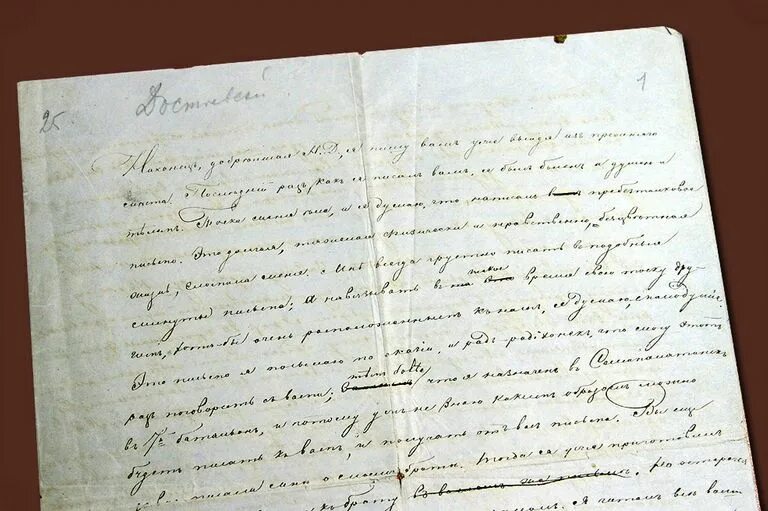 25 Достоевскій 1
Наконецъ, добрѣйшая Н. Д., я пишу вамъ уже выходя изъ прежняго
мѣста. Послѣдній разъ, какъ я писалъ вамъ, я былъ боленъ и душою и
тѣломъ. Тоска меня ѣла, и я думаю, что написалъ пребезтолковое
письмо. Эта долгая, тяжолая физически и нравственно, безцвѣтная
жизнь, сломила меня. Мнѣ всегда грустно писать въ подобныя
минуты письма; А навязывать въ такое время свою тоску дру-
гимъ, хотя-бы очень расположеннымъ къ намъ, я думаю, малодушіе.
Это письмо я посылаю по оказіи, и радъ-радёхонекъ, что могу этотъ
разъ поговорить съ вами; тѣмъ болѣе что я назначенъ въ Семипалатинскъ
въ 7й баталіонъ, и потому ужъ не знаю какимъ образомъ можно
будетъ писать къ вамъ, и получать отъ васъ письма. Вы ещё
писали мнѣ о моемъ братѣ. Тогда я уже приготовилъ
къ брату
Я читалъ въ вашемъ